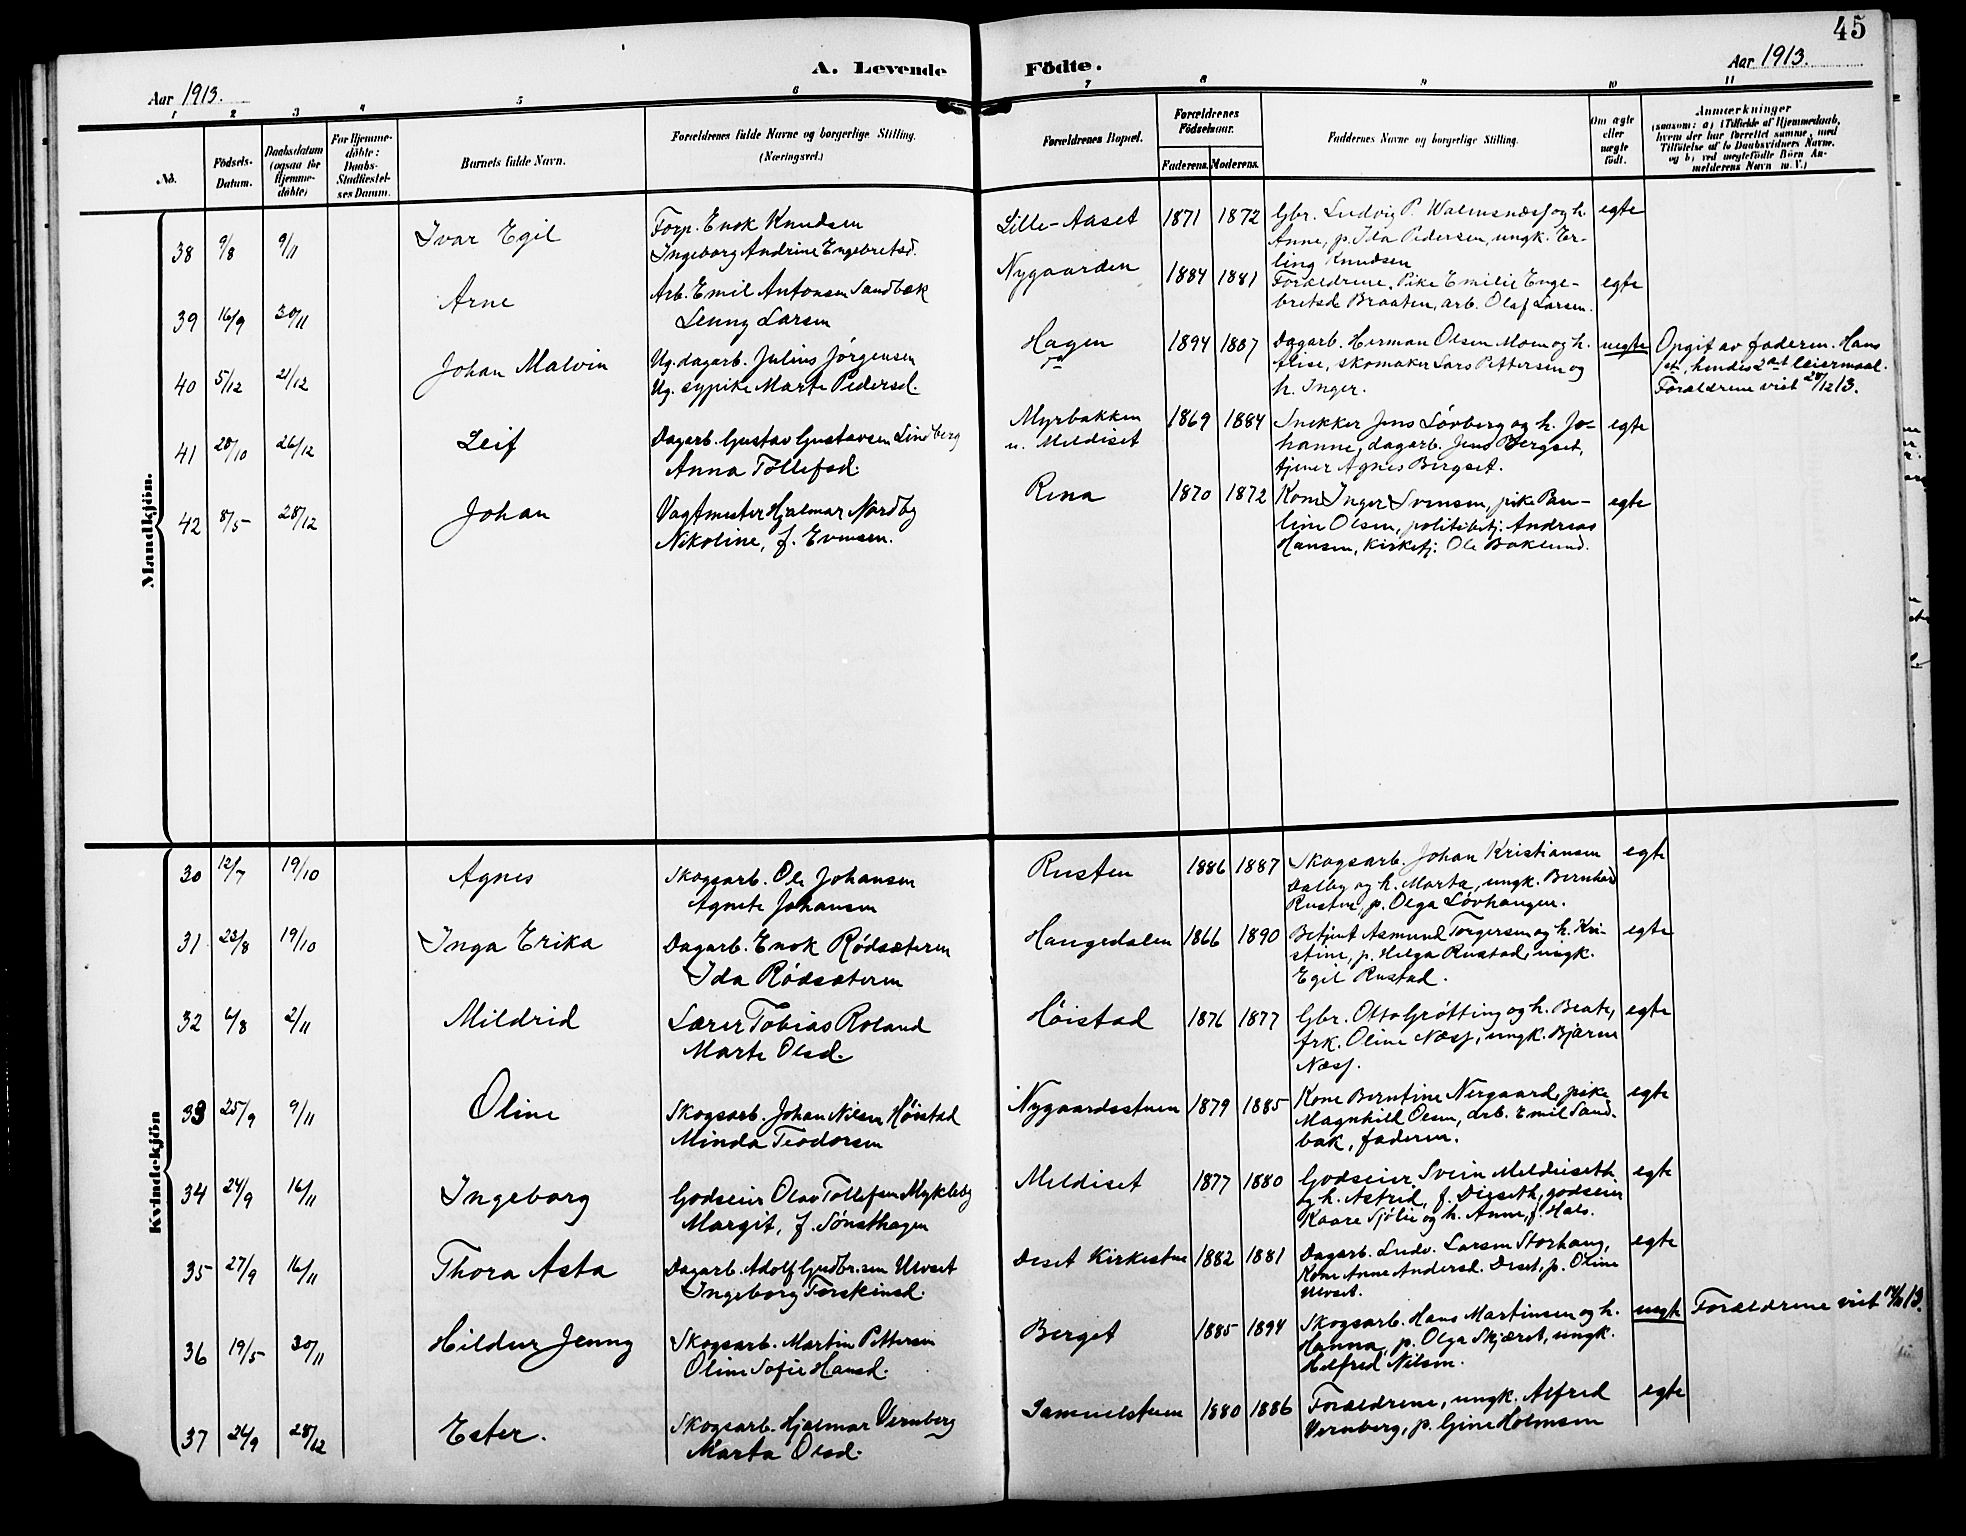 45
A. Levende Födte.
Aar 1913.
Aar 1913.
1 2 3 4 5 6 7 8 9 10 11
No.
Födsels-Datum.
Daabsdatum (ogsaa for Hjemmedöbte)
For Hjemmedöbte: Daabs-Stadfæstelses Datum.
Barnets fulde Navn.
Forældrenes fulde Navne og borgerlige Stilling.
(Næringsvei.)
Forældrenes Bopæl.
Forældrenes Födselsaar.
Faderens. Moderens.
Faddernes Navne og borgerlige Stilling.
Om ægte eller uægte födt.
Anmærkninger
(saasom: a) i Tilfælde af Hjemmedaab,
hvem der har forrettet samme, med
Tilföielse af to Daabsvidners Navne,
og b) ved uægtefödte Börn An-
melderens Navn m. V.)
Mandkjön.
38 9/8 9/11 Ivar Egil
Forp. Enok Knudsen
Ingeborg Andrine Engebretsd.
Lille-Aaset 1871 1872
Gbr. Ludvig P. Walmsnæss og h.
Anne, p. Ida Pedersen, ungk. Er-
ling Knudsen
egte
39 16/9 30/11 Arne
Arb. Emil Antonsen Sandbæk
Lenny Larsen
Nygaarden 1884 1881
Forældrene, Pike Emilie Enge-
bretsd. Braaten, arb. Olaf Larsen.
egte
40 5/12 21/12 Johan Malvin
Ug. dagarb. Julius Jørgensen
Ug. sypike Marte Pedersd.
Hagen 1894 1887
Dagarb. Herman Olsen Moen og h.
Elise, skomaker Lars Pettersen og
h. Inger.
uegte
Opgit av faderen. Hans
1st, hendes 2det leiermaal.
Forældrene viet 28/12 13.
41 28/10 26/12 Leif
Dagarb. Gustav Gustavsen Lindberg
Anna Tollefsd.
Myrbakken
u. Meldiset 1869 1884
Snekker Jens Løvberg og h. Jo-
hanne, dagarb. Jens Bergset,
tjener Agnes Bergset.
egte
42 8/5 28/12 Johan
Vagtmester Hjalmar Nordby
Nikoline, f. Evensen.
Rena 1870 1872
Kone Inger Svensen, pike Pau-
line Olsen, politibetj. Andreas
Hansen, kirketj. Ole Baklund.
egte
Kvindekjön
30 12/7 19/10 Agnes
Skogsarb. Ole Johansen
Agnete Johansen
Rusten 1886 1887
Skogsarb. Johan Kristiansen
Dalby og h. Marta, ungk. Bernhard
Rusten, p. Olga Løvhaugen.
egte
31 23/8 19/10 Inga Erika
Dagarb. Enok Rødsæteren
Ida Rødsæteren
Haugedalen 1866 1890
Betjent Asmund Torgersen og h. Kri-
stine, p. Helga Rustad, ungk.
Egil Rustad.
egte
32 6/8 2/11 Mildrid
Lærer Tobias Roland
Marte Olsd.
Høistad 1876 1877
Gbr. Otto Grøtting og h. Beate,
frk. Oline Næss, ungk. Bjarne
Næss.
egte
33 25/9 9/11 Oline
Skogsarb. Johan Nilsen Høistad
Minda Teodorsen
Nygaardsstuen 1879 1885
Kone Berntine Nergaard, pike
Magnhild Olsen, arb. Emil Sand-
bæk, faderen.
egte
34 24/9 16/11 Ingeborg
Godseier Olav Tollefsen Mykleby
Margit, f. Sønsthagen
Meldiset 1877 1880
Godseier Svein Meldieseth
og h. Astrid, f. Dieseth, godseier
Kaare Sjølie og h. Anne, f. Hals.
egte
35 27/9 16/11 Thora Asta
Dagarb. Adolf Gudbr.sen Ulvset
Ingeborg Torskinsd.
Deset Kirkestue 1882 1881
Dagarb. Ludv. Larsen Storhaug,
Kone Anne Andersd. Deset, p. Oline
Ulvset.
egte
36 19/5 30/11 Hildur Jenny
Skogsarb. Martin Pettersen
Oline Sofie Hansd.
Berget 1885 1894
Skogsarb. Hans Martinsen og h.
Hanna, p. Olga Skjæret, ungk.
Helfred Nilsen.
uegte
Forældrene viet 13.
37 26/9 28/12 Ester.
Skogsarb. Hjalmar Vernberg
Marta Olsd.
Samuelstuen 1880 1886
Forældrene, ungk. Alfred
Vernberg, p. Gine Holmsen
egte